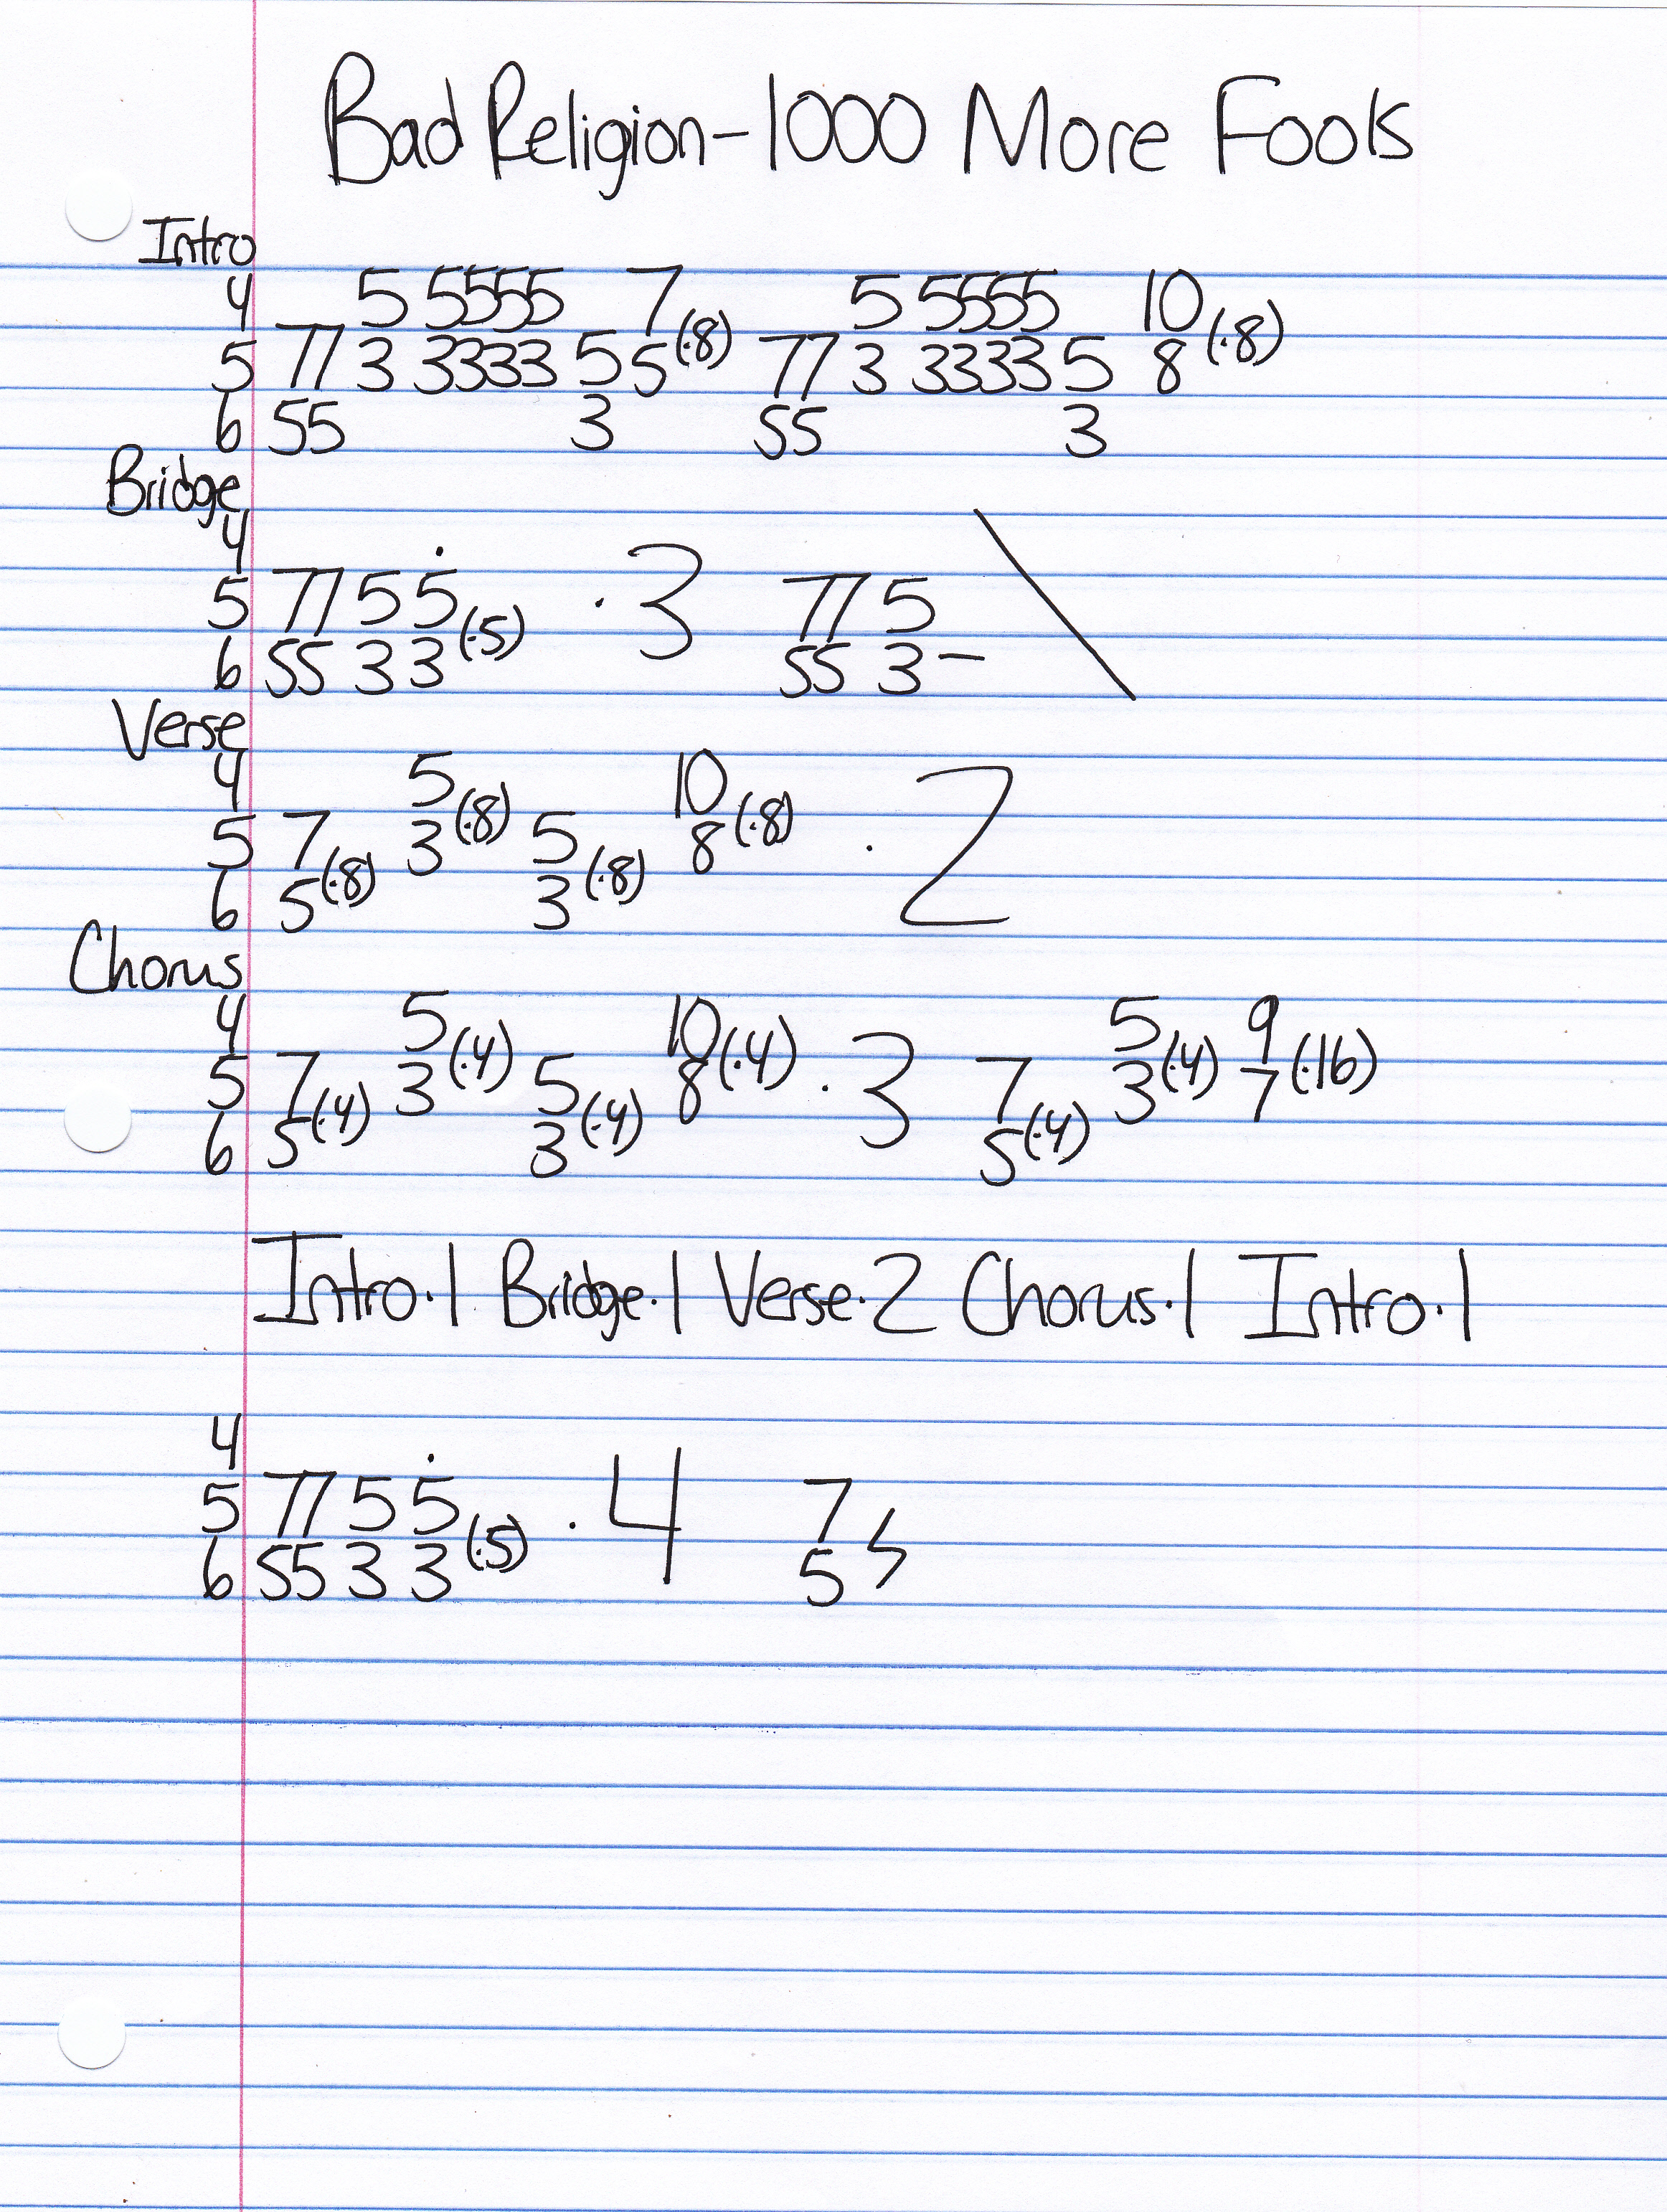 Bad Religion-1000 More Fools
Intro
4 5 5555 7 5 5555 10
5 77 3 3333 5 5(·8) 77 3 3333 5 8(·8)
6 55 3 55 3
Bridge
4
5 77 5 5 · 3 77 5
6 55 3 3 (·5) 55 3 – \
Verse
4 5 10
5 7 3(·8) 5 8(·8) · 2
6 5(·8) 3(·8)
Chorus
4 5 10 5 9
5 7 3(·4) 5 8(·4) · 3 7 3(·4) 7(·16)
6 5(·4) 3(·4) 5(·4)
Intro·1 Bridge·1 Verse·2 Chorus·1 Intro·1
4
5 77 5 5 · 4 7
6 55 3 3 (·5) 5